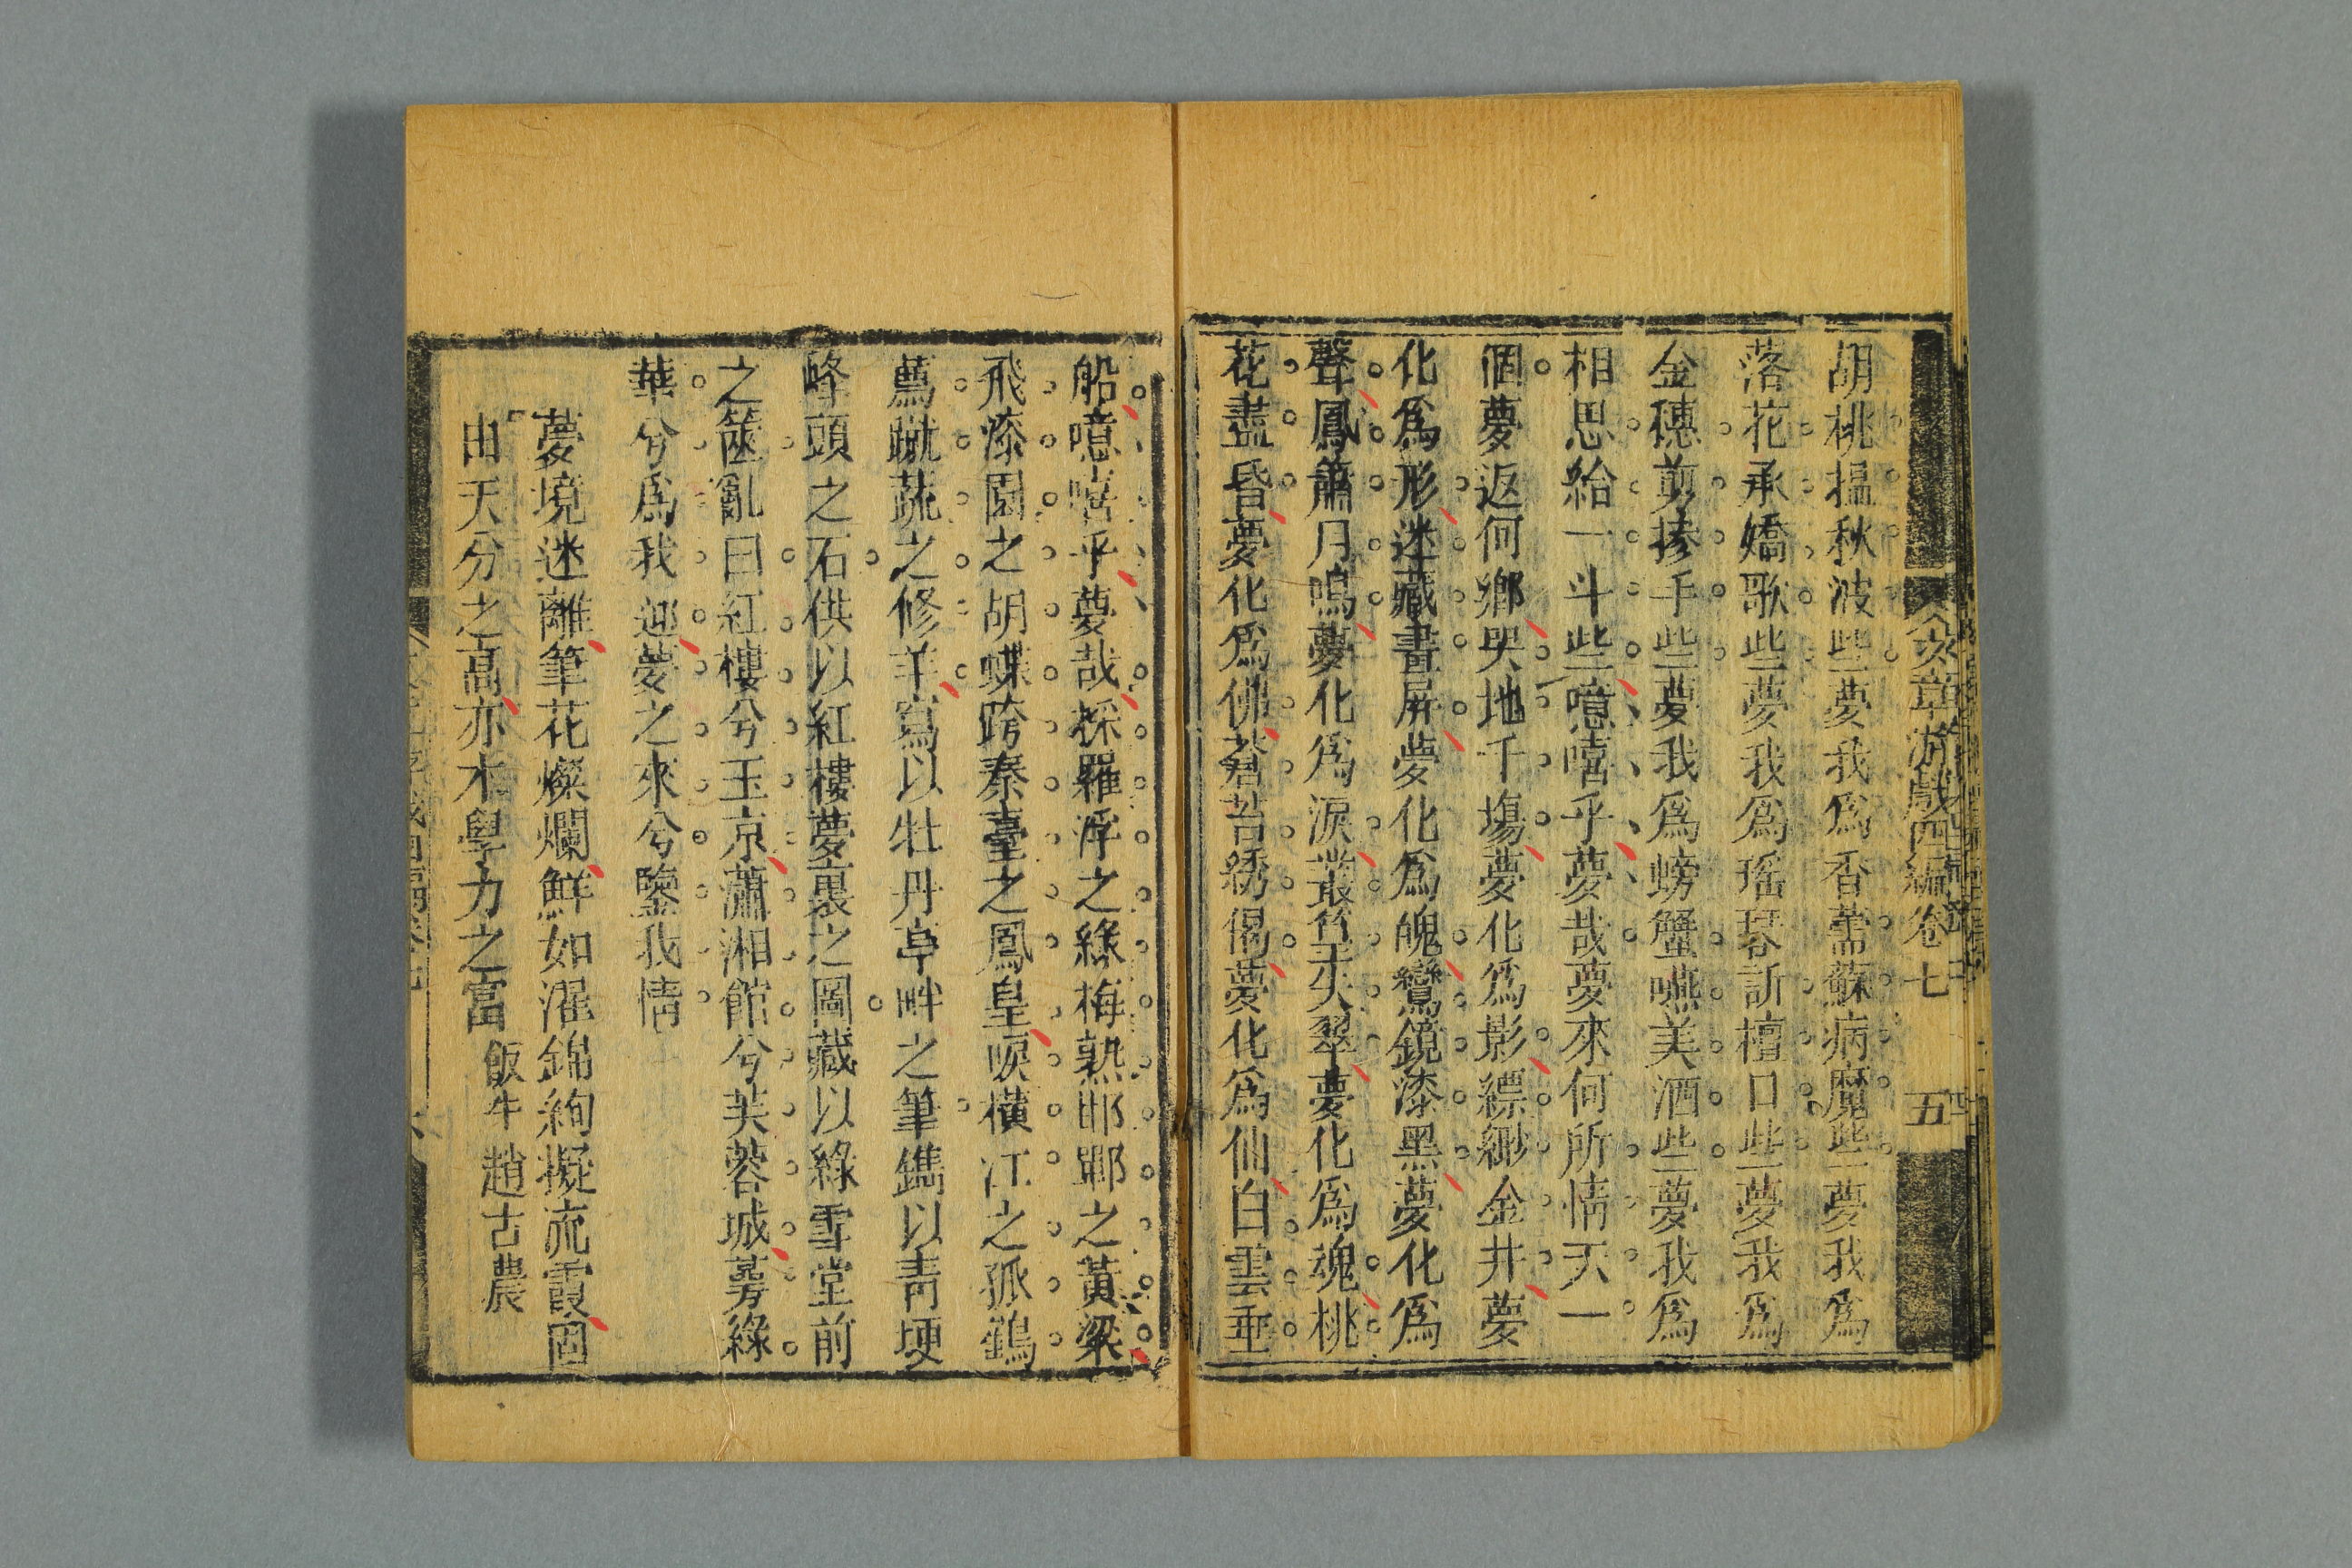 文章游戲四編卷七 五
胡桃揾秋波些夢我爲香薷蘇病魔些夢我爲
落花承嬌歌些夢我爲瑤琴訴檀口些夢我爲
金穗剪摻手些夢我爲螃蟹嚥美酒些夢我爲
相思給一斗些噫嘻乎夢哉夢來何所情天一
個夢返何鄉哭地千塲夢化爲影縹緲金井夢
化爲形迷藏畫屏夢化爲魄鸞鏡漆黑夢化爲
聲鳳簫月嗚夢化爲淚叢篁夫翠夢化爲魂桃
花盡昏夢化爲佛菭苔綉偈夢化爲仙白雲垂
船噫嘻乎夢哉採羅浮之綠梅熟邯鄲之黃粱
飛漆園之胡蝶跨秦臺之鳳皇唳橫江之孤鶴
薦蹴蔬之修羊寫以牡丹亭畔之筆鐫以青埂
峰頭之石供以紅樓夢裏之圖藏以綠雪堂前
之篋亂曰紅樓兮玉京瀟湘館兮芙蓉城蕚綠
華兮爲我迎夢之來兮鑒我情
夢境迷離筆花燦爛鮮如濯錦絢擬流霞固
由天分之高亦本學力之富 飯牛趙古農